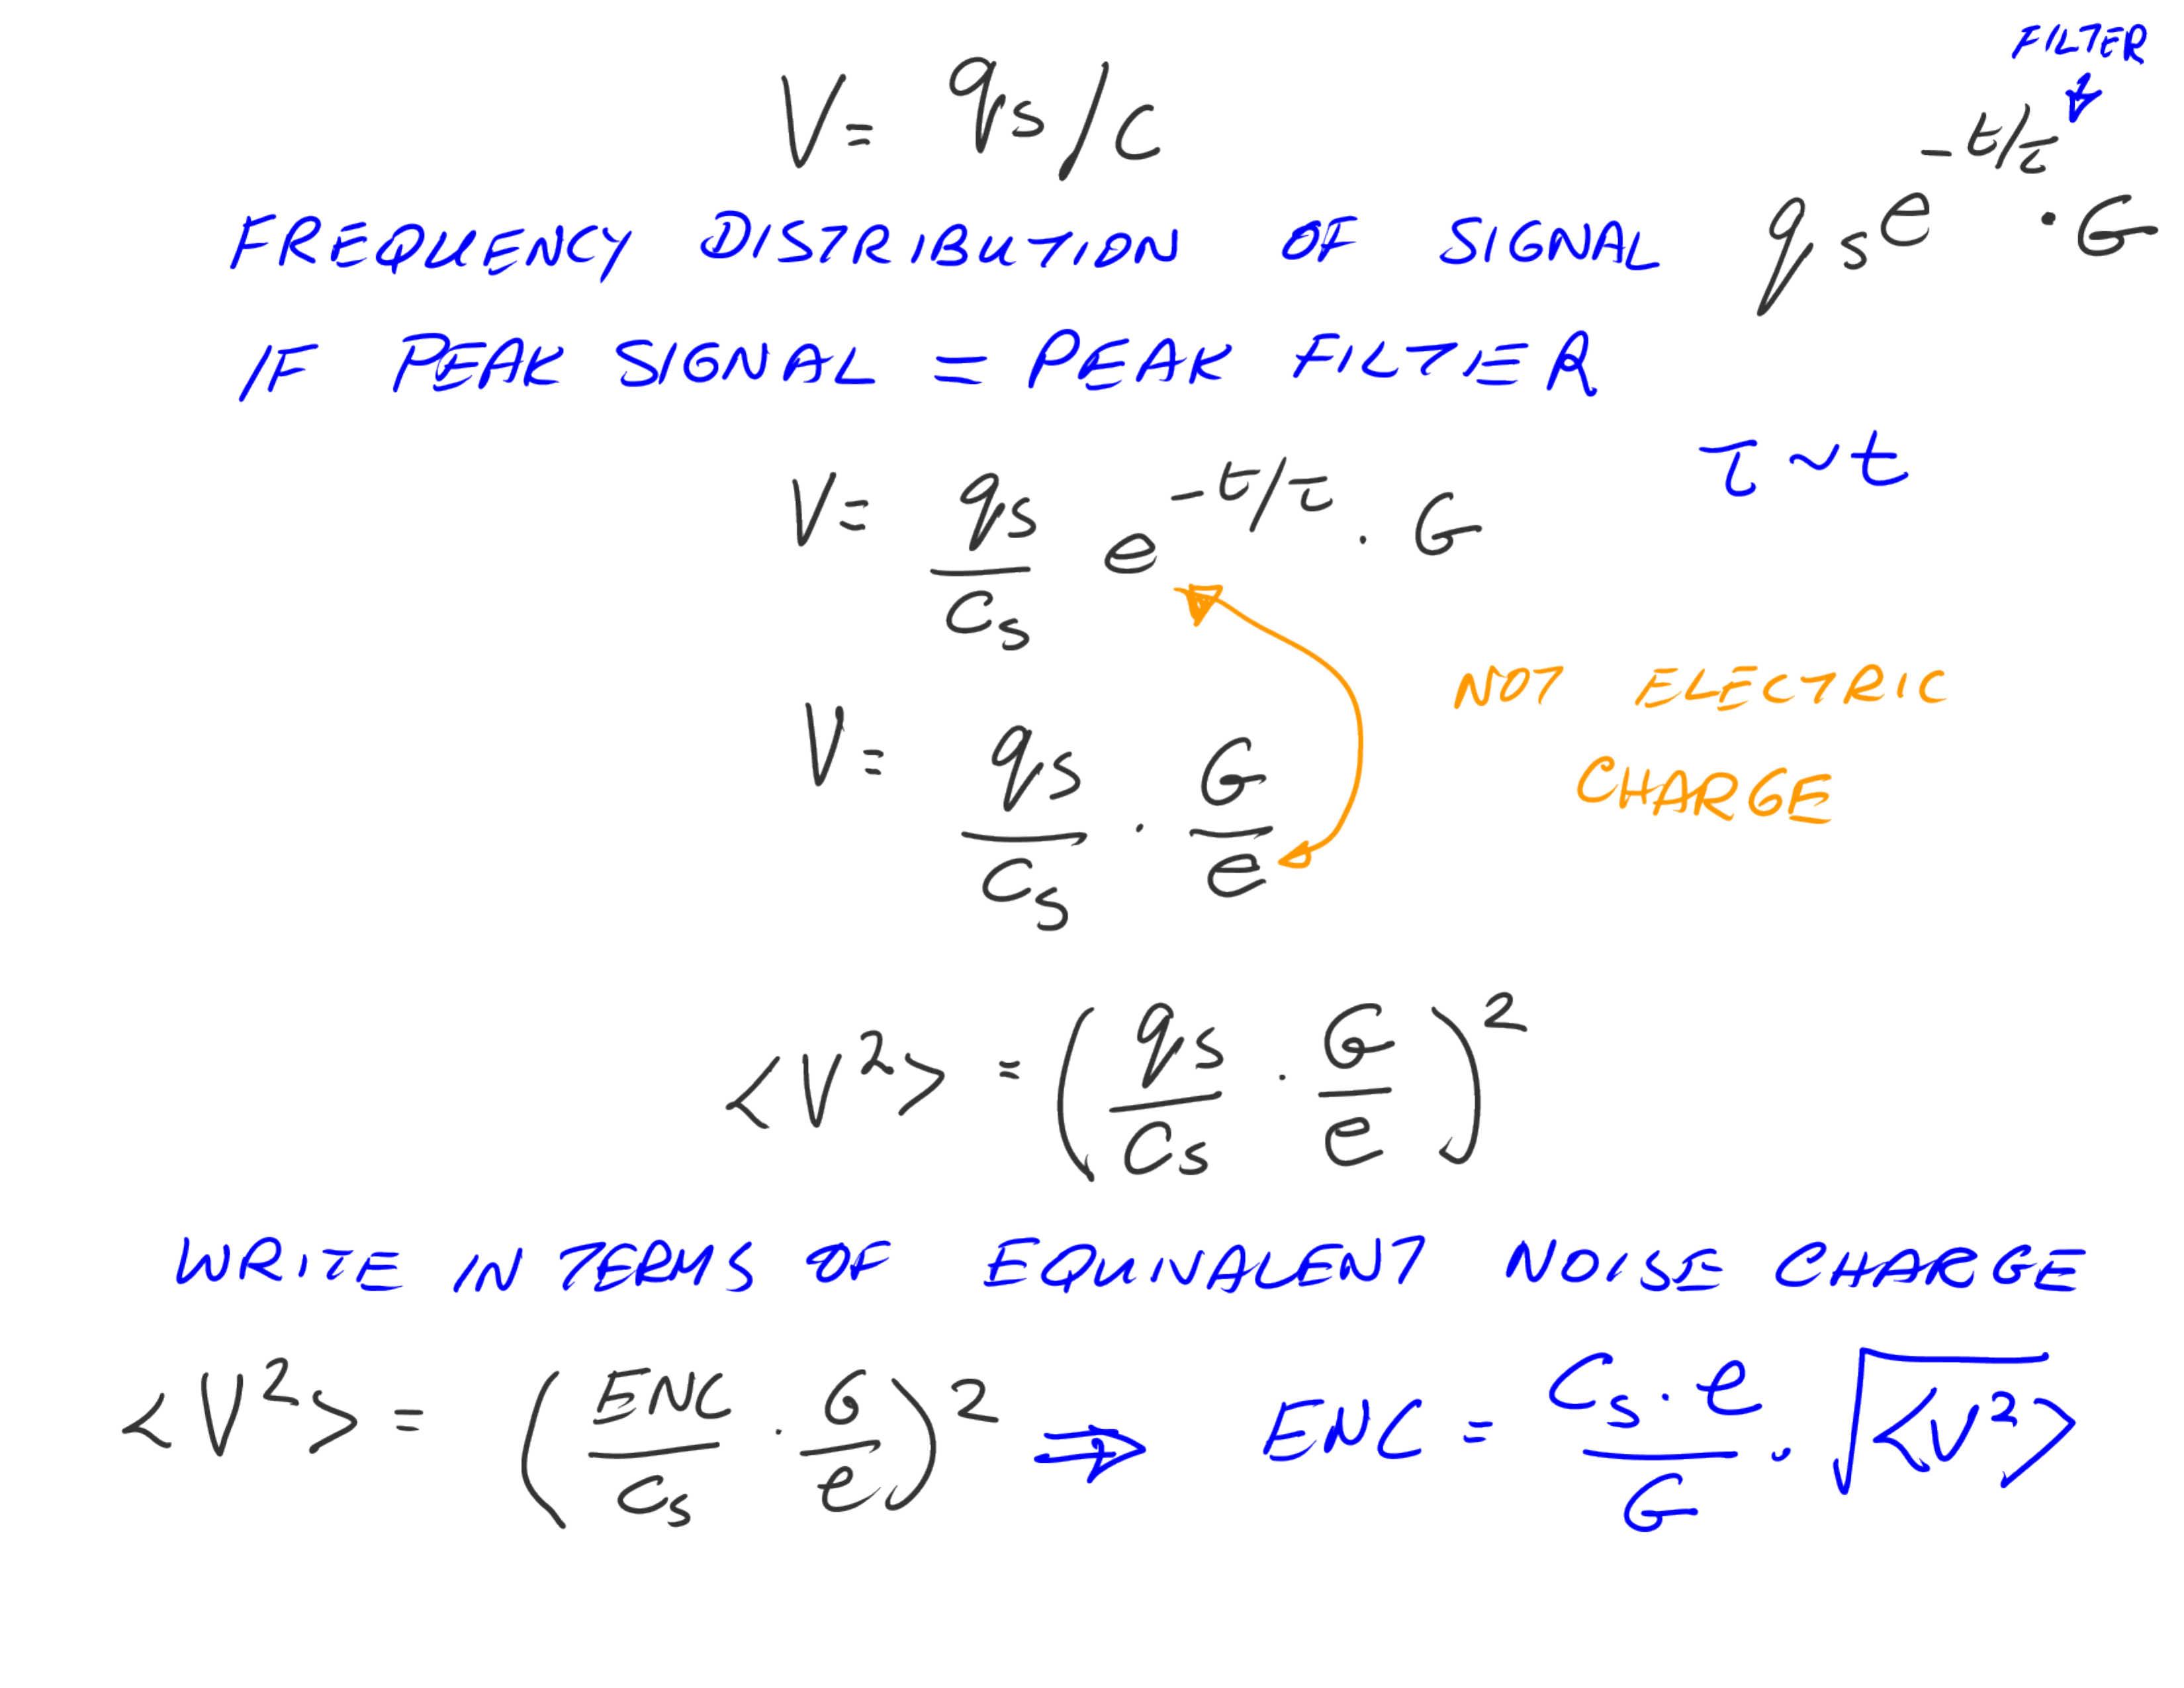 FILTER
V = qs/C
FREQUENCY DISTRIBUTION OF SIGNAL qs e^{-t/τ} · G
IF PEAK SIGNAL = PEAK FILTER
τ ~ t
V = qs/Cs e^{-t/τ} · G
NOT ELECTRIC
CHARGE
V = qs/Cs · G/e
<V²> = (qs/Cs · G/e)²
WRITE IN TERMS OF EQUIVALENT NOISE CHARGE
<V²> = (ENC/Cs · G/e)² ⇒ ENC = Cs·e/G · √<V²>